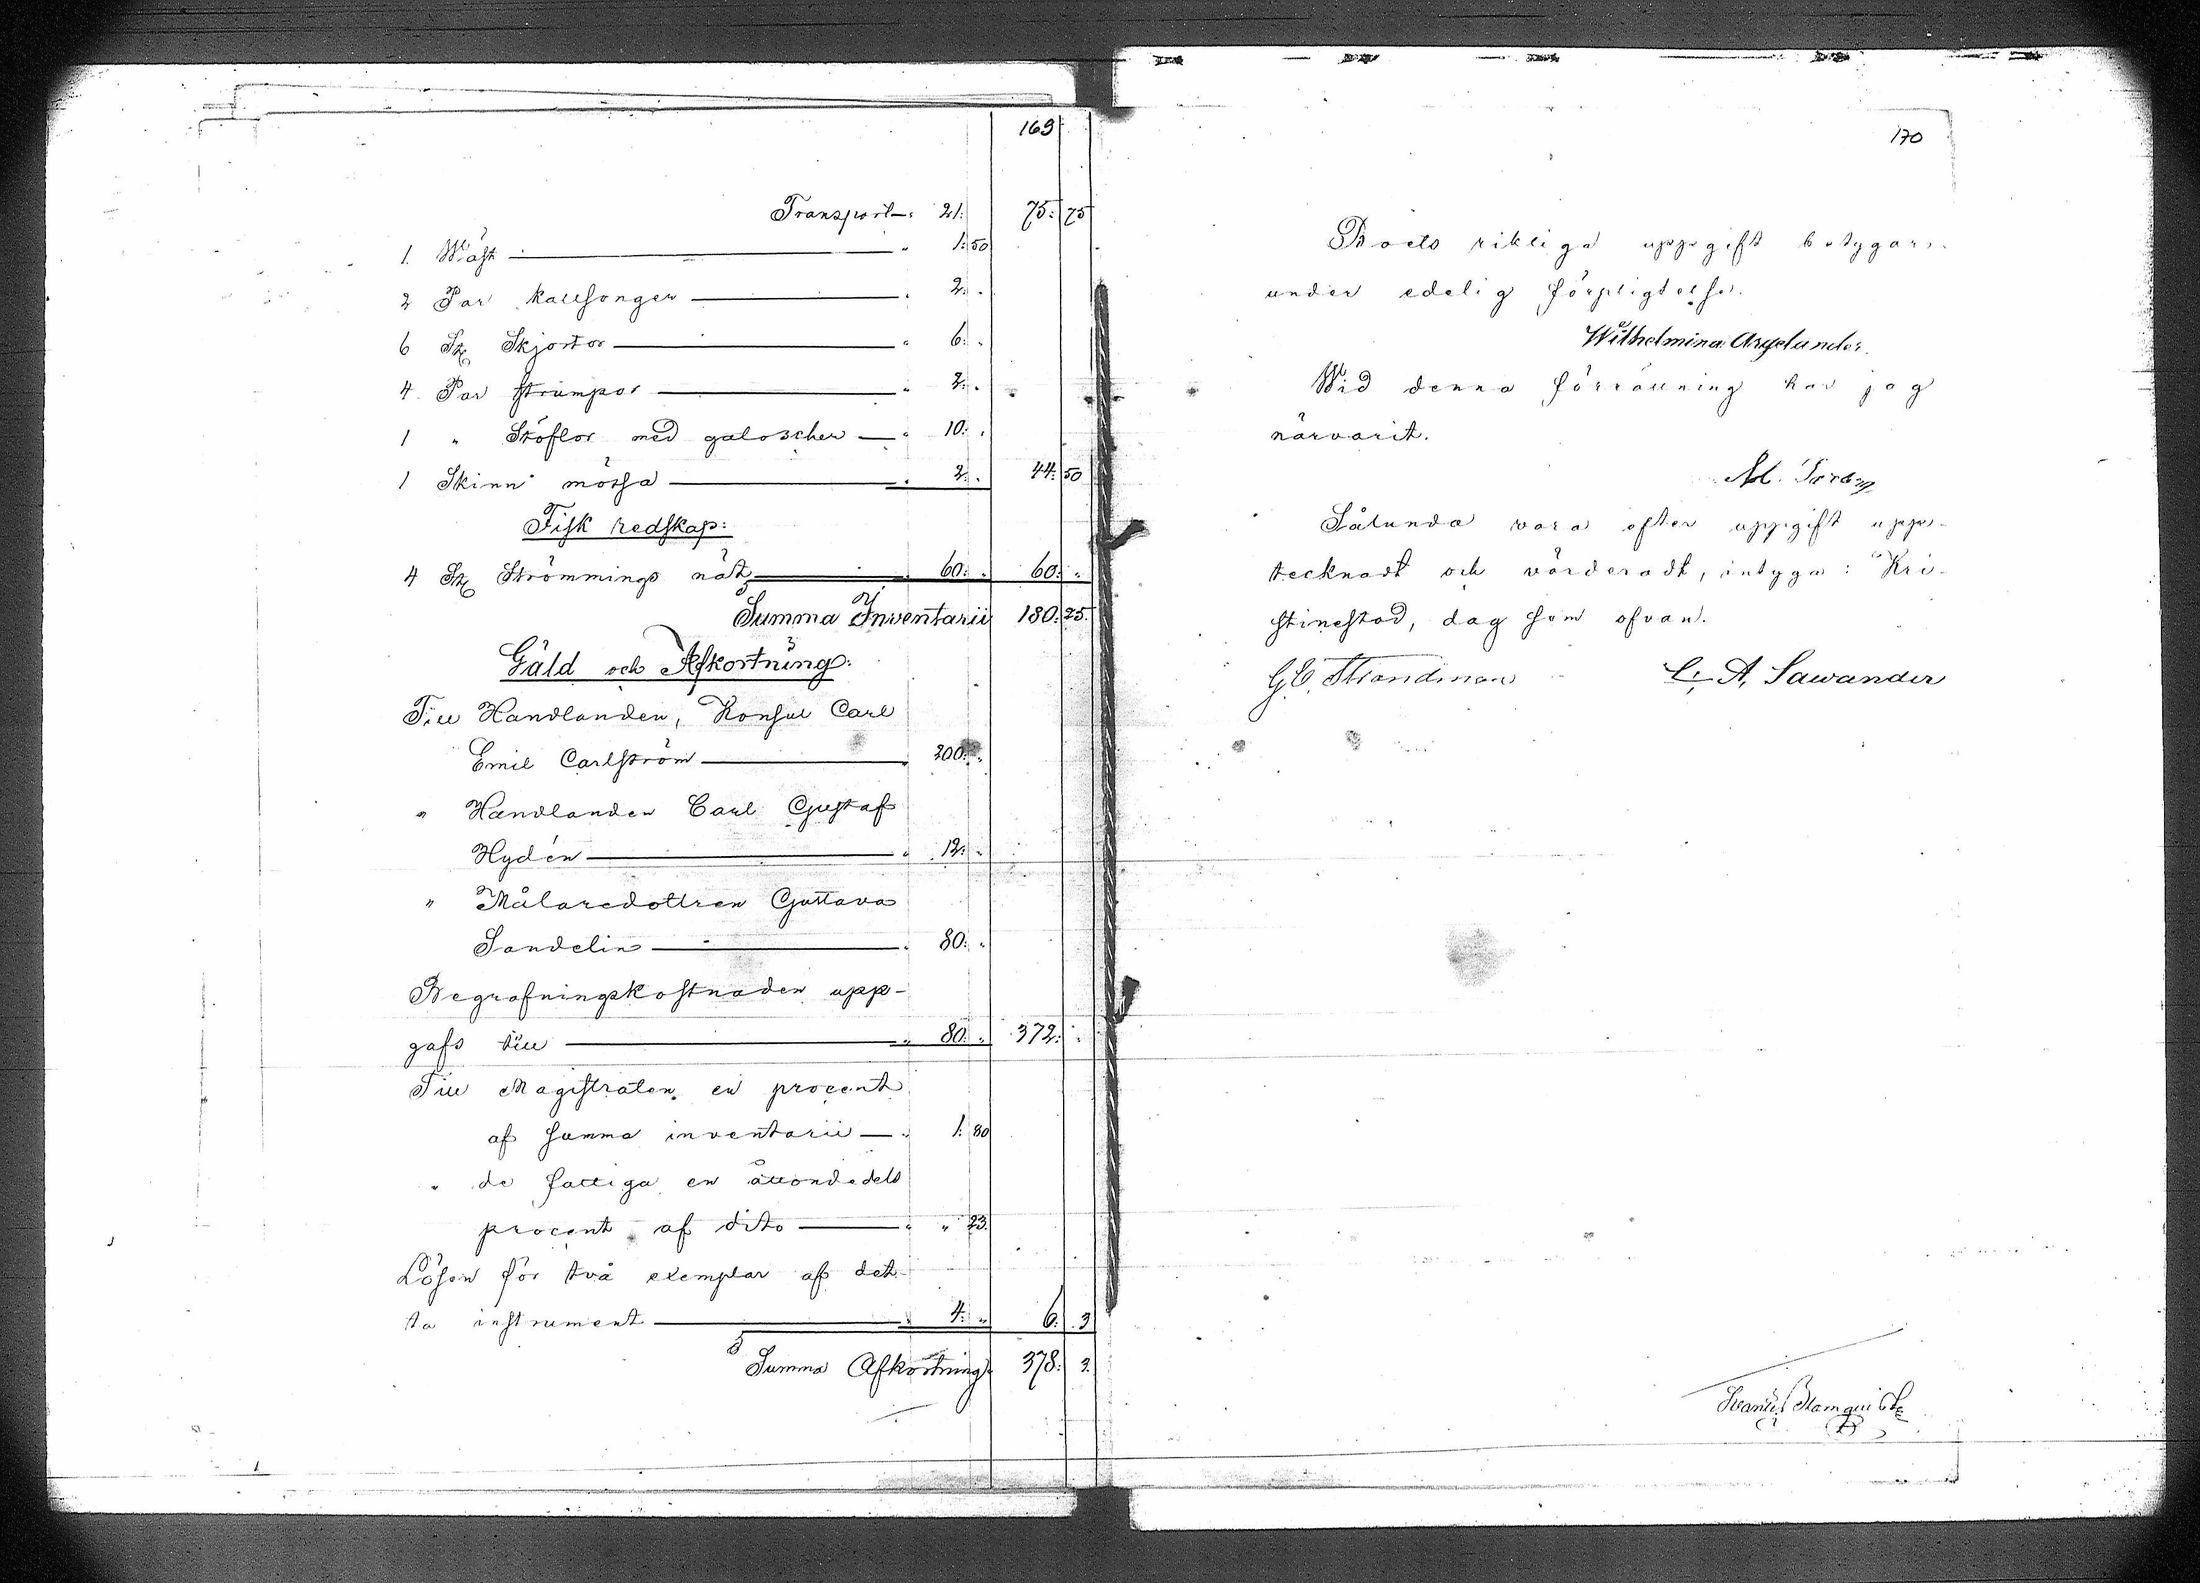 169
Transport " 21. 75: 75
1. Wäst " 1: 50
2 Par kallsonger " 2: "
6 St Skjortor " 6: "
4 Par strumpor " 2: "
1 " Stöflor med galoscher " 10: "
1 Skinn mössa " 2: " 44: 50
Fisk redskap:
4 St Strömmings nät " 60: " 60: "
Summa Inventarii 180: 25.
Gäld och Afkortning:
Till Handlanden, Konsul Carl
Emil Carlström " 200: "
" Handlanden Carl Gustaf
Hydén " 12: "
" Målaredottren Gustava
Sandelin " 80: "
Begrafningskostnaden upp-
gafs till " 80: " 372: "
Till Magistraten en procent
af summa inventarii " 1: 80
" de fattiga en åttondedels
procent af dito " " 23.
Lösen för två exemplar af det-
ta instrument " 4: " 6: 3
Summa Afkortning 378: 3.
170
Boets riktiga uppgift betygar
under edelig förpligtelse.
Wilhelmina Argelander.
Wid denna förrättning har jag
närvarit.
Sålunda vara efter uppgift upp-
tecknadt och värderadt, intyga: Kri-
stinestad, dag som ofvan.
G. E. Strandman C. A. Sawander